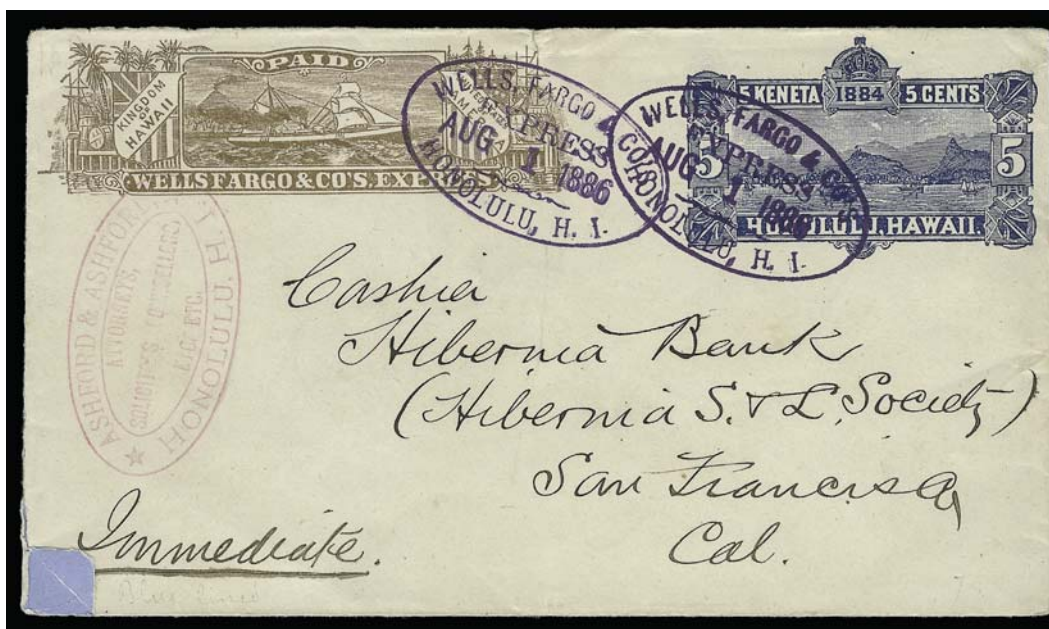 PAID
KINGDOM
HAWAII
WELLS FARGO & CO'S. EXP
WELLS, FARGO & CO'S
EXPRESS
AUG 1 1886
HONOLULU, H. I.
WELLS, FARGO & CO'S
EXPRESS
AUG 1 1886
HONOLULU, H. I.
5 KENETA 1884 5 CENTS
5 5
HONOLULU, HAWAII.
ASHFORD & ASHFORD
ATTORNEYS,
SOLICITORS, COUNSELLORS
ETC.
HONOLULU, H. I.
Cashier
Hibernia Bank
(Hibernia S. & L. Society)
San Francisco
Cal.
Immediate.